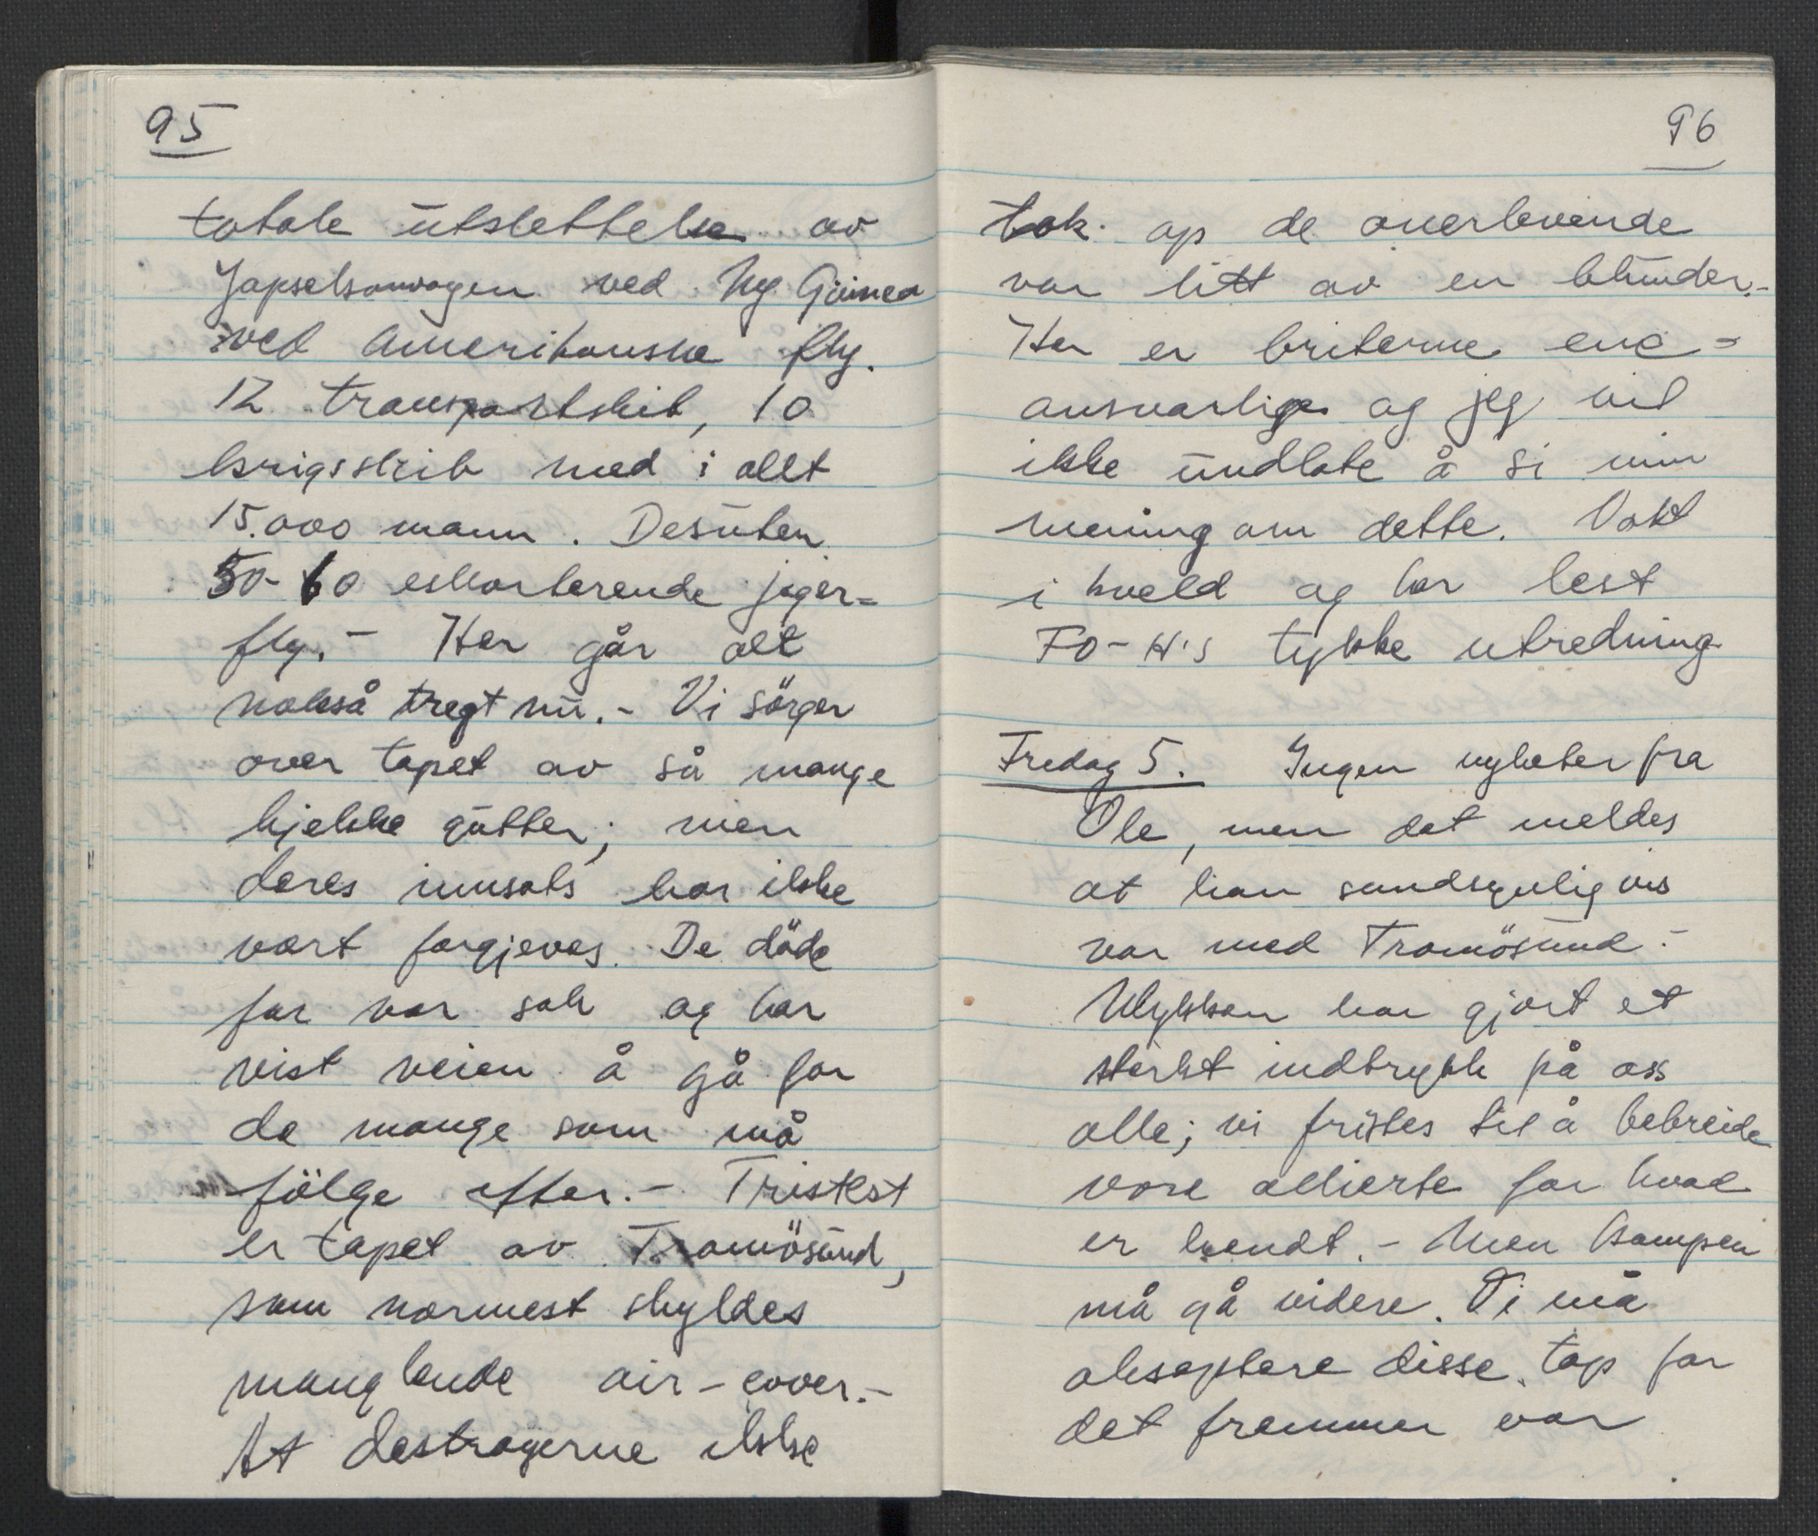 95
totale utslettelse av
Japsekonvoyen ved Ny Guinea
ved amerikanske fly.
12 transportskib, 10
krigsskib med i allt
15.000 mann. Desuten
50-60 eskorterende jager-
fly. - Her går alt
nokså tregt nu. - Vi sörger
over tapet av så mange
kjekke gutter; men
deres innsats har ikke
vært forgjeves. De döde
for vor sak og har
vist veien å gå for
de mange som må
fölge efter. - Tristest
er tapet av Tromösund,
som nærmest skyldes
manglende air-cover. -
At destroyerne ikke
96
tok op de overlevende
var litt av en blunder. -
Her er briterne ene-
ansvarlige og jeg vil
ikke undlate å si min
mening om dette. Vakt
i kveld og har lest
FO-H's tykke utredning
Fredag 5. Ingen nyheter fra
Ole, men det meldes
at han sandsynligvis
var med Tromösund. -
Ulykken har gjort et
sterkt indtrykk på oss
alle; vi fristes til å bebreide
vore allierte for hvad
er hendt. - Men kampen
må gå videre. Vi må
akseptere disse tap for
det fremmer vor